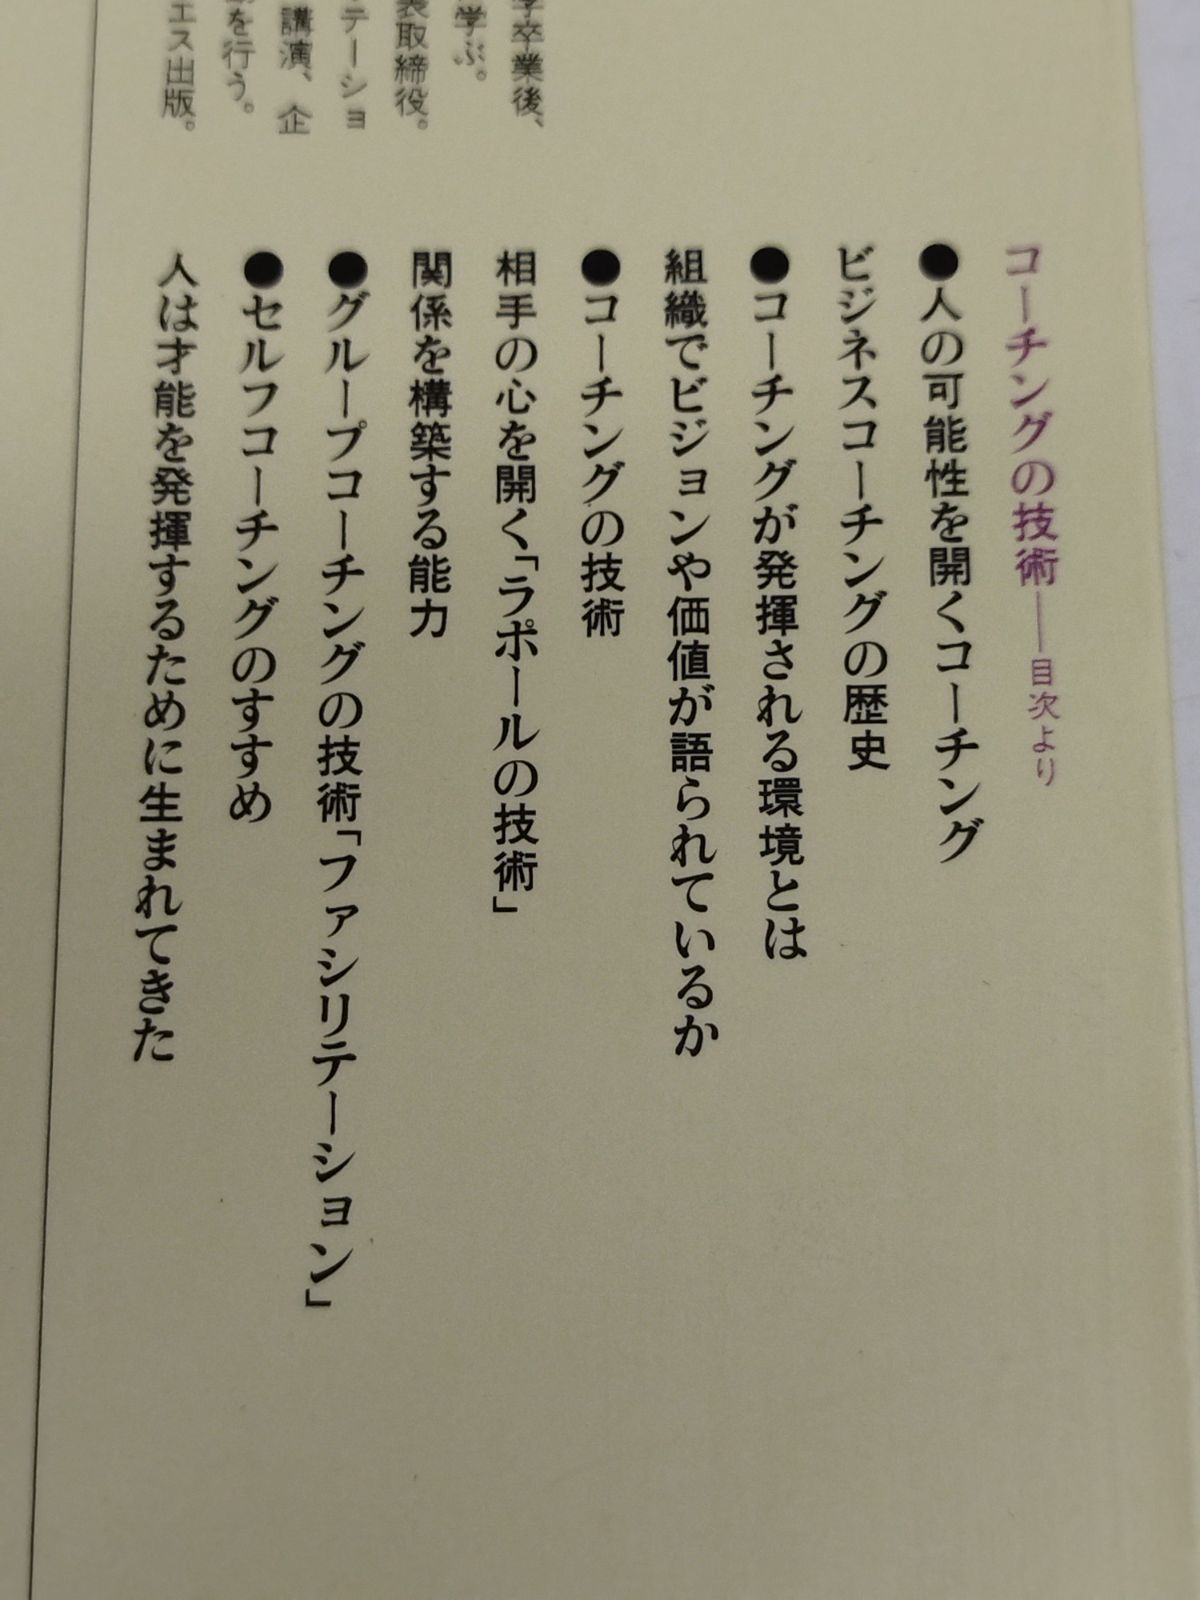 学卒業後、
学ぶ。
表取締役。
テーショ
講演、企
を行う。
エス出版。
コーチングの技術──目次より
●人の可能性を開くコーチング
ビジネスコーチングの歴史
●コーチングが発揮される環境とは
組織でビジョンや価値が語られているか
●コーチングの技術
相手の心を開く「ラポールの技術」
関係を構築する能力
●グループコーチングの技術「ファシリテーション」
●セルフコーチングのすすめ
人は才能を発揮するために生まれてきた